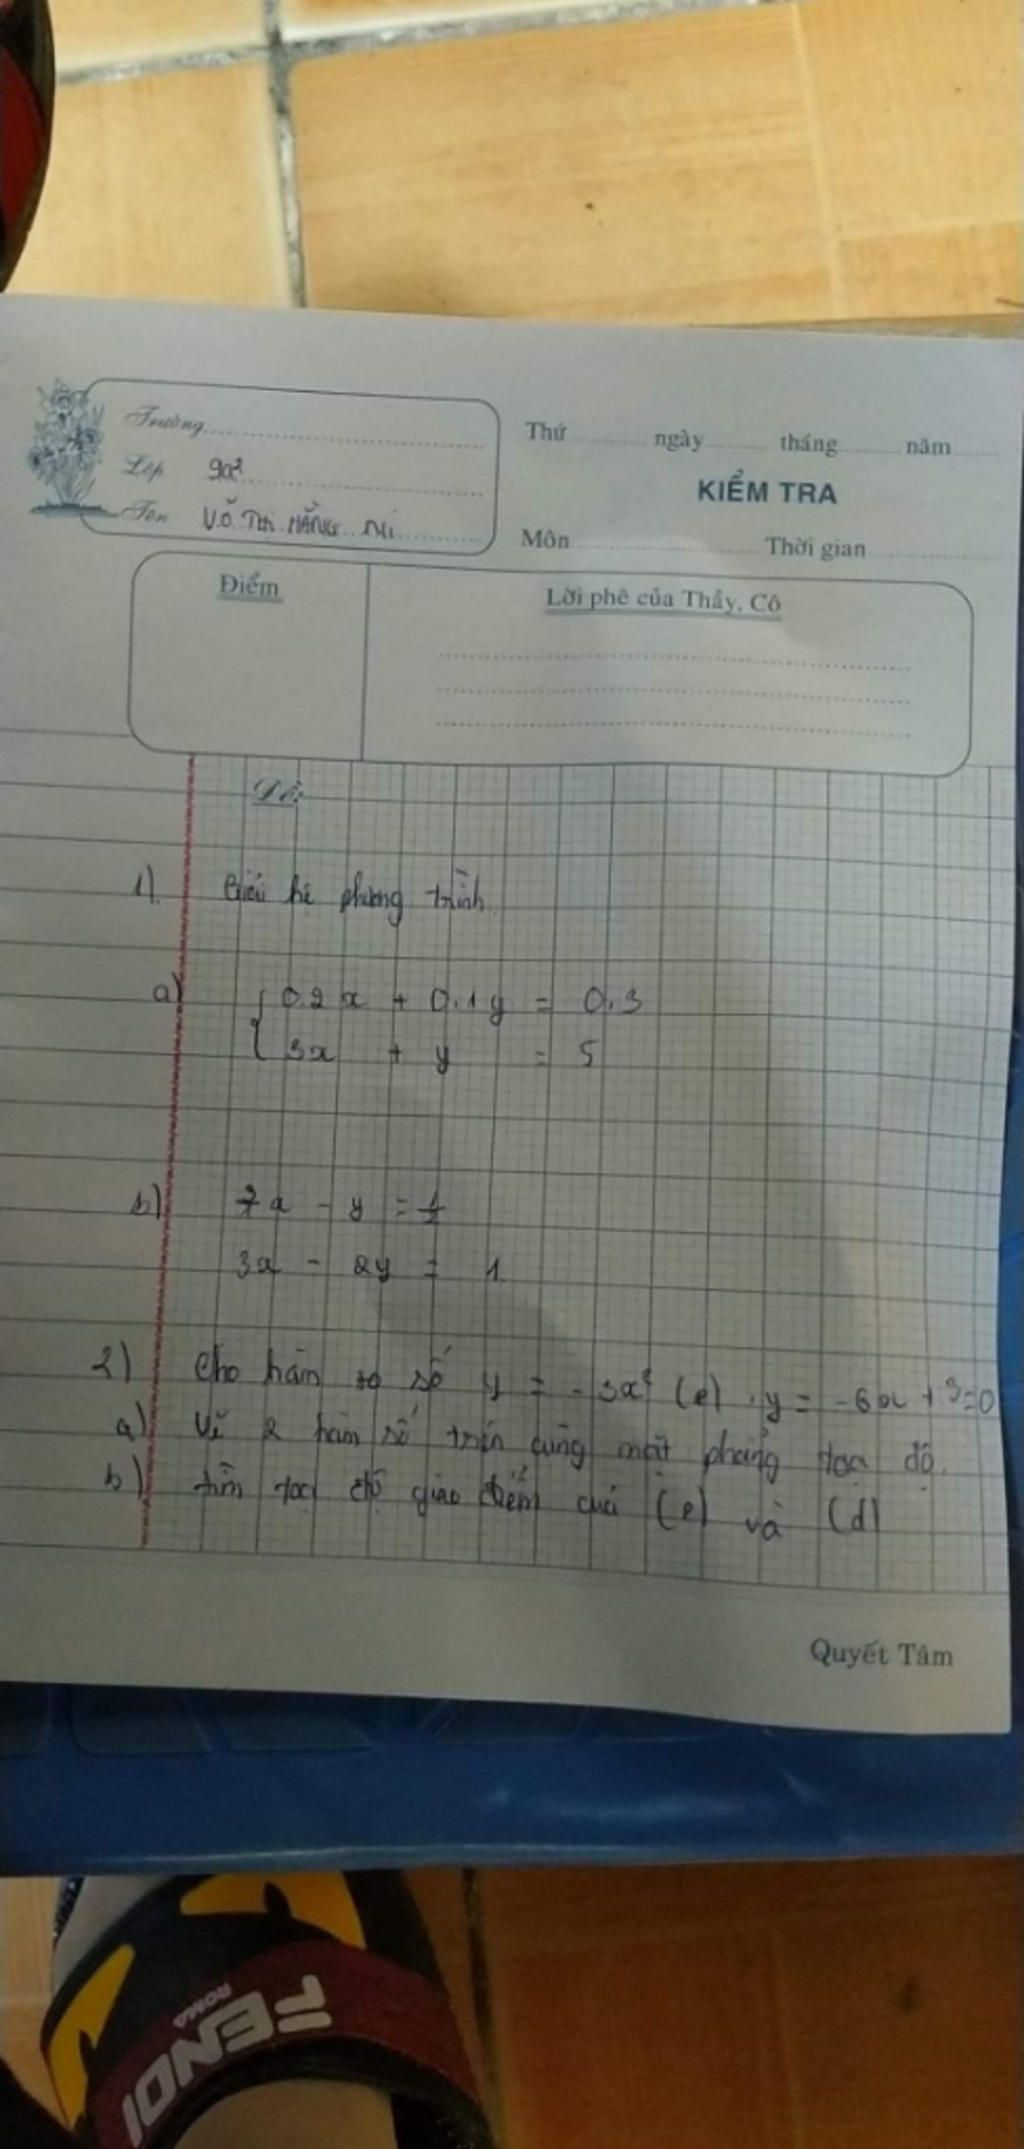 Trường
Lớp 9a²
Tên Võ Thị Hằng Ni
Thứ ngày tháng năm
KIỂM TRA
Môn Thời gian
Điểm
Lời phê của Thầy, Cô
Đề:
1) Giải hệ phương trình
a) { 0.2x + 0.1y = 0.3
3x + y = 5
b) 7x - y = 1/2
3x - 2y = 1
2) Cho hàm số y = -3x² (P) . y = -6x + 3=0
a) Vẽ 2 hàm số trên cùng mặt phẳng tọa độ.
b) tìm tọa độ giao điểm của (P) và (d)
Quyết Tâm
FENDI
ROMA